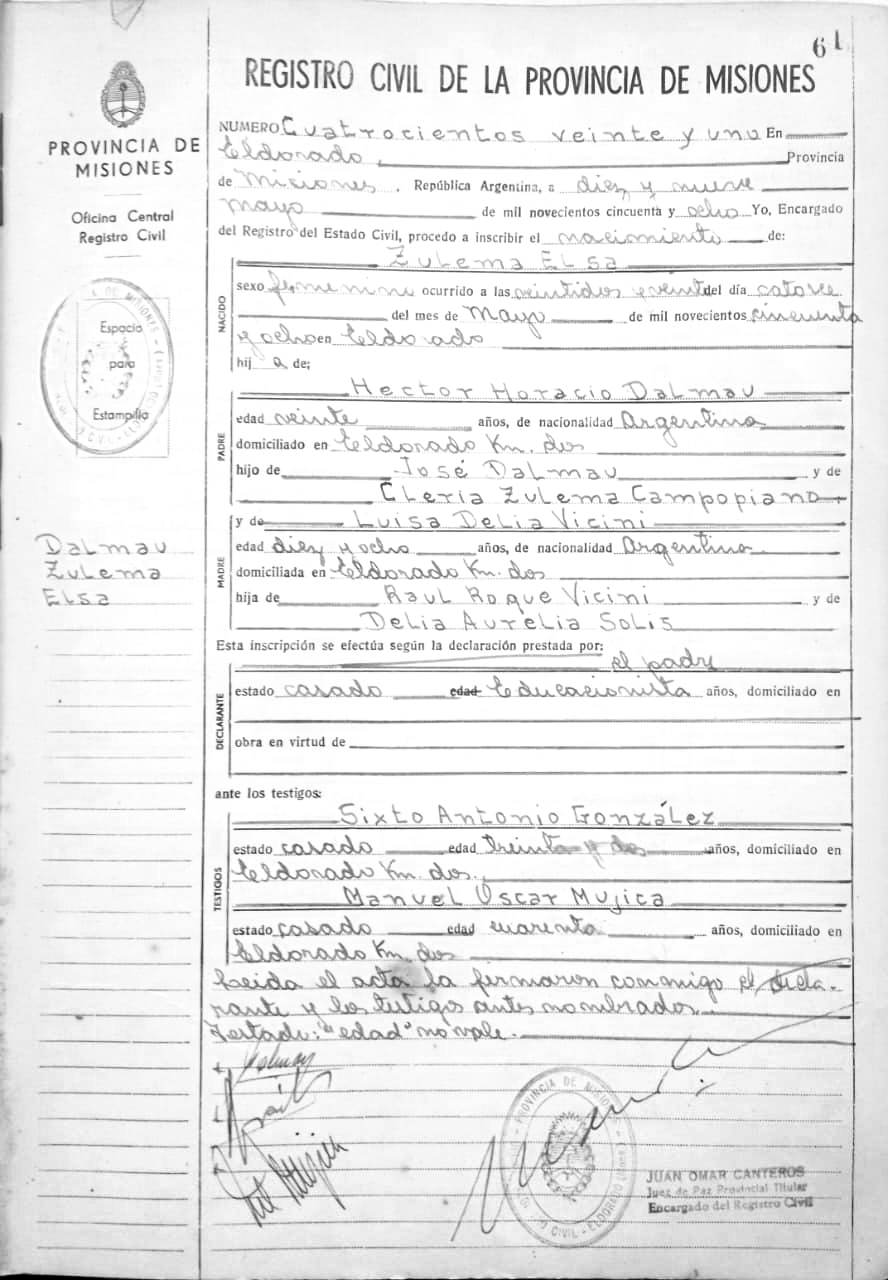 61
REGISTRO CIVIL DE LA PROVINCIA DE MISIONES
PROVINCIA DE
MISIONES
Oficina Central
Registro Civil
Espacio
para
Estampilla
Dalmau
Zulema
Elsa
NUMERO Cuatrocientos veinte y uno En
Eldorado, Provincia
de Misiones, República Argentina, a diez y nueve
mayo de mil novecientos cincuenta y ocho Yo, Encargado
del Registro del Estado Civil, procedo a inscribir el nacimiento de:
NACIDO
Zulema Elsa
sexo femenino ocurrido a las veintidos y veinte del día catorce
del mes de Mayo de mil novecientos cincuenta
y ocho en Eldorado
hij a de;
PADRE
Hector Horacio Dalmau
edad veinte años, de nacionalidad Argentina
domiciliado en Eldorado Km. dos
hijo de José Dalmau y de
Cleria Zulema Campopiano
MADRE
y de Luisa Delia Vicini
edad diez y ocho años, de nacionalidad Argentina
domiciliada en Eldorado Km. dos
hija de Raul Roque Vicini y de
Delia Aurelia Solis
Esta inscripción se efectúa según la declaración prestada por:
DECLARANTE
el padre
estado casado edad Educacionista años, domiciliado en
obra en virtud de
ante los testigos:
TESTIGOS
Sixto Antonio González
estado casado edad treinta y dos años, domiciliado en
Eldorado Km. dos.
Manuel Oscar Mujica
estado casado edad cuarenta años, domiciliado en
Eldorado Km. dos
Leida el acta la firmaron conmigo el decla-
rante y los testigos antes nombrados.
Testado: "edad" no vale.
Dalmau
PROVINCIA DE MISIONES
CIVIL - ELDORADO
JUAN OMAR CANTEROS
Juez de Paz Provincial Titular
Encargado del Registro Civil